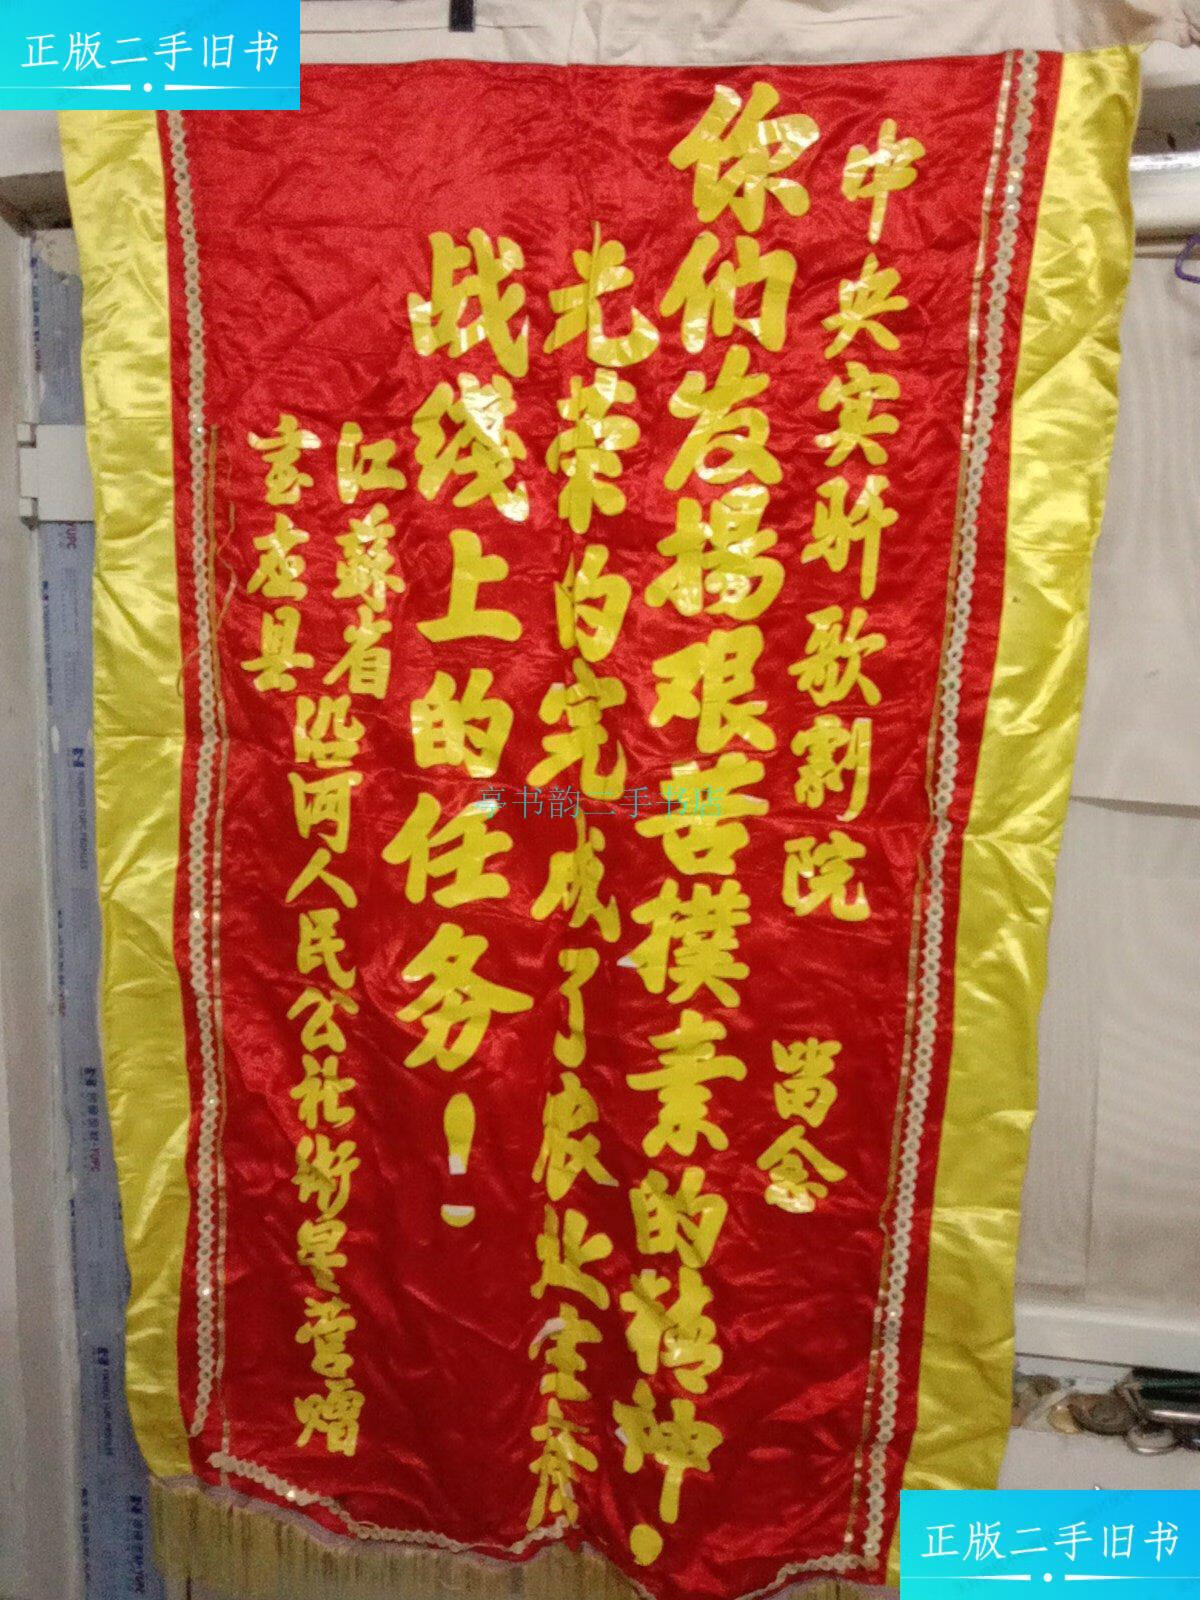 正版二手旧书
中央实驗歌剧院
留念
你们发揚艰苦樸素的精神.
光荣的完成了农业生产
战线上的任务!
江蘇省
宝应县
沿河人民公社街皇营赠
亭书韵二手书店
正版二手旧书